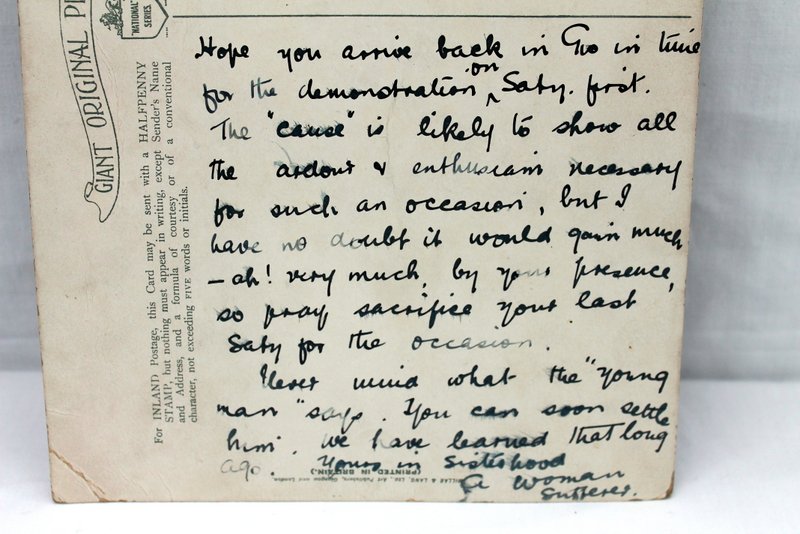 GIANT ORIGINAL
"NATIONAL"
SERIES.
For INLAND Postage, this Card may be sent with a HALFPENNY
STAMP, but nothing must appear in writing, except Sender's Name
and Address, and a formula of courtesy or of a conventional
character, not exceeding FIVE words or initials.
Hope you arrive back in in time
for the demonstration on Saty. first.
The "cause" is likely to show all
the ardour & enthusiasm necessary
for such an occasion, but I
have no doubt it would gain much
– ah! very much, by your presence,
so pray sacrifice your last
Saty for the occasion.
Never mind what the "young
man" says. You can soon settle
him. We have learned that long
ago. Yours in Sisterhood
A Woman
Sufferer.
MILLAR & LANG, LTD., Art Publishers, Glasgow and London
(PRINTED IN BRITAIN.)